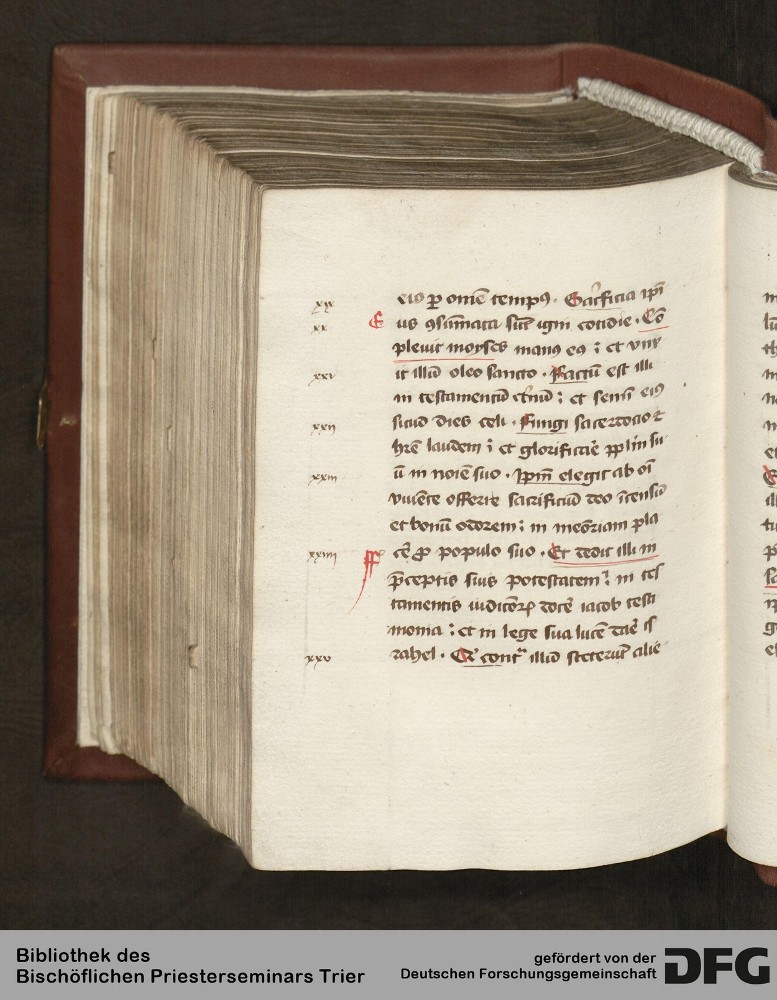 xix eiꝰ ꝑ om̄e tempꝰ · Sac͛ficia ip̄i
xx E us ꝯsūmata sūt igni cotidie · Cō
pleuit moyses manꝰ eꝰ ; et vnx
xxi it illū oleo sancto · Factū est illi
in testamentū et̄nū ; et semī eiꝰ
sicud dies celi · 
xxii Fungi sacerdocio ⁊
hr̄e laudem ; et glorificar̄e pp̄lm su
xxiii ū in noīe suo · Ip̄m elegit ab oī
viuēte offerre sacrificiū deo īcensū
et bonū odorem ; in meōriam pla
xxiiii cē ꝓ populo suo · Et dedit illi in
p̄ceptis suis potestatem ; in tes
tamentis iudicioꝝ docē iacob testi
monia ; et in lege sua lucē dar̄e is
xxv rahel · Qr̄ contᵃ illū steterūt alie
Bibliothek des
Bischöflichen Priesterseminars Trier
gefördert von der
Deutschen Forschungsgemeinschaft
DFG